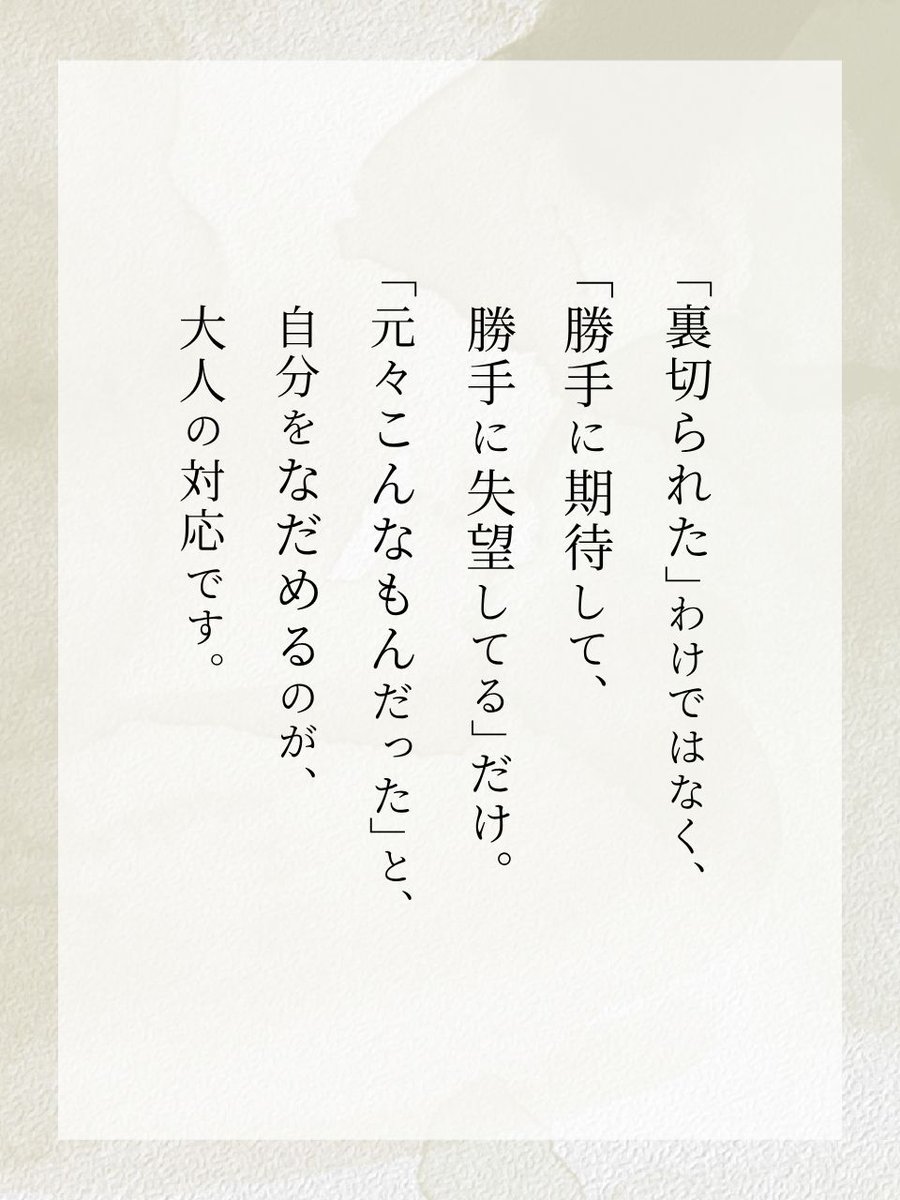 「裏切られた」わけではなく、
「勝手に期待して、
勝手に失望してる」だけ。
「元々こんなもんだった」と、
自分をなだめるのが、
大人の対応です。